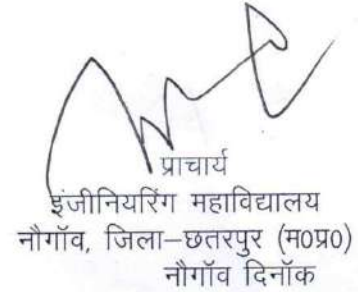 प्राचार्य
इंजीनियरिंग महाविद्यालय
नौगॉव, जिला–छतरपुर (म0प्र0)
नौगॉव दिनॉक